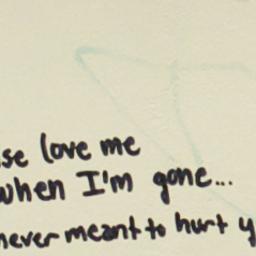 se love me
when I'm gone...
never meant to hurt y